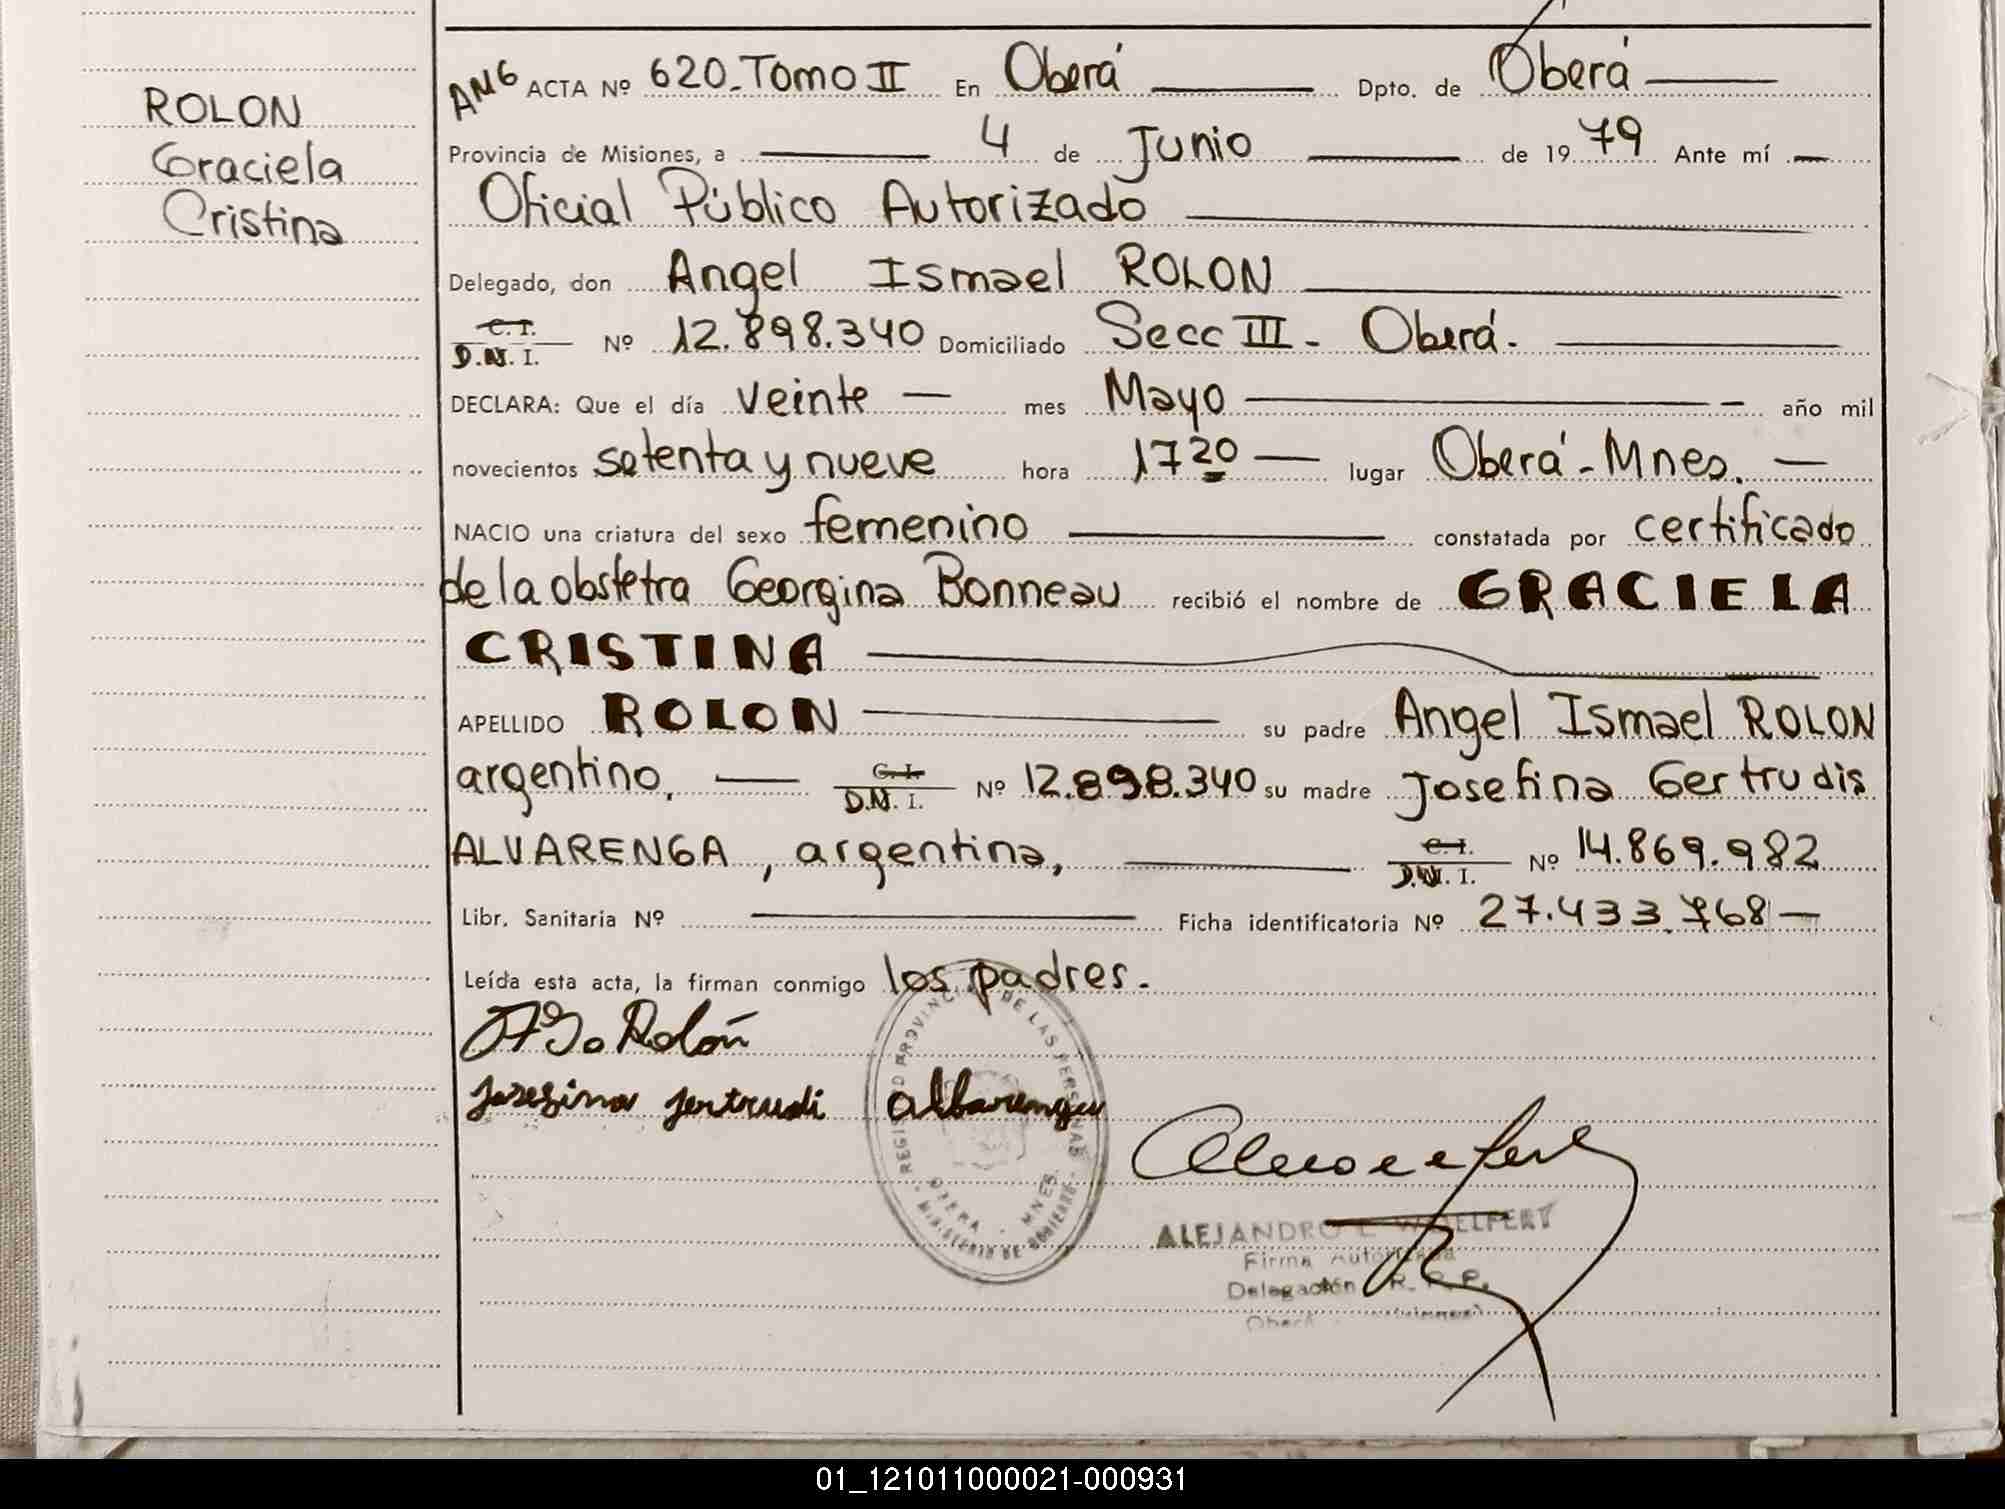 ROLON
Graciela
Cristina
ANG ACTA Nº 620_Tomo II En Oberá Dpto. de Oberá
Provincia de Misiones, a 4 de Junio de 1979 Ante mí
Oficial Público Autorizado
Delegado, don Angel Ismael ROLON
C.I.
D.N.I. Nº 12.898.340 Domiciliado Secc III - Oberá.
DECLARA: Que el día veinte mes Mayo año mil
novecientos setenta y nueve hora 1720 lugar Oberá - Mnes.
NACIO una criatura del sexo femenino constatada por certificado
de la obstetra Georgina Bonneau recibió el nombre de GRACIELA
CRISTINA
APELLIDO ROLON su padre Angel Ismael ROLON
argentino, C.I. D.N.I. Nº 12.898.340 su madre Josefina Gertrudis
ALVARENGA, argentina, C.I. D.N.I. Nº 14.869.982
Libr. Sanitaria Nº Ficha identificatoria Nº 27.433.768
Leída esta acta, la firman conmigo los padres.
Rolón
Josefina Jertrudi Albarenga
REGISTRO PROVINCIAL DE LAS PERSONAS
OBERA - MNES.
MINISTERIO DE GOBIERNO
ALEJANDRO E. WOELFERT
Firma Autorizada
Delegación R. P. P.
Oberá
01_121011000021-000931